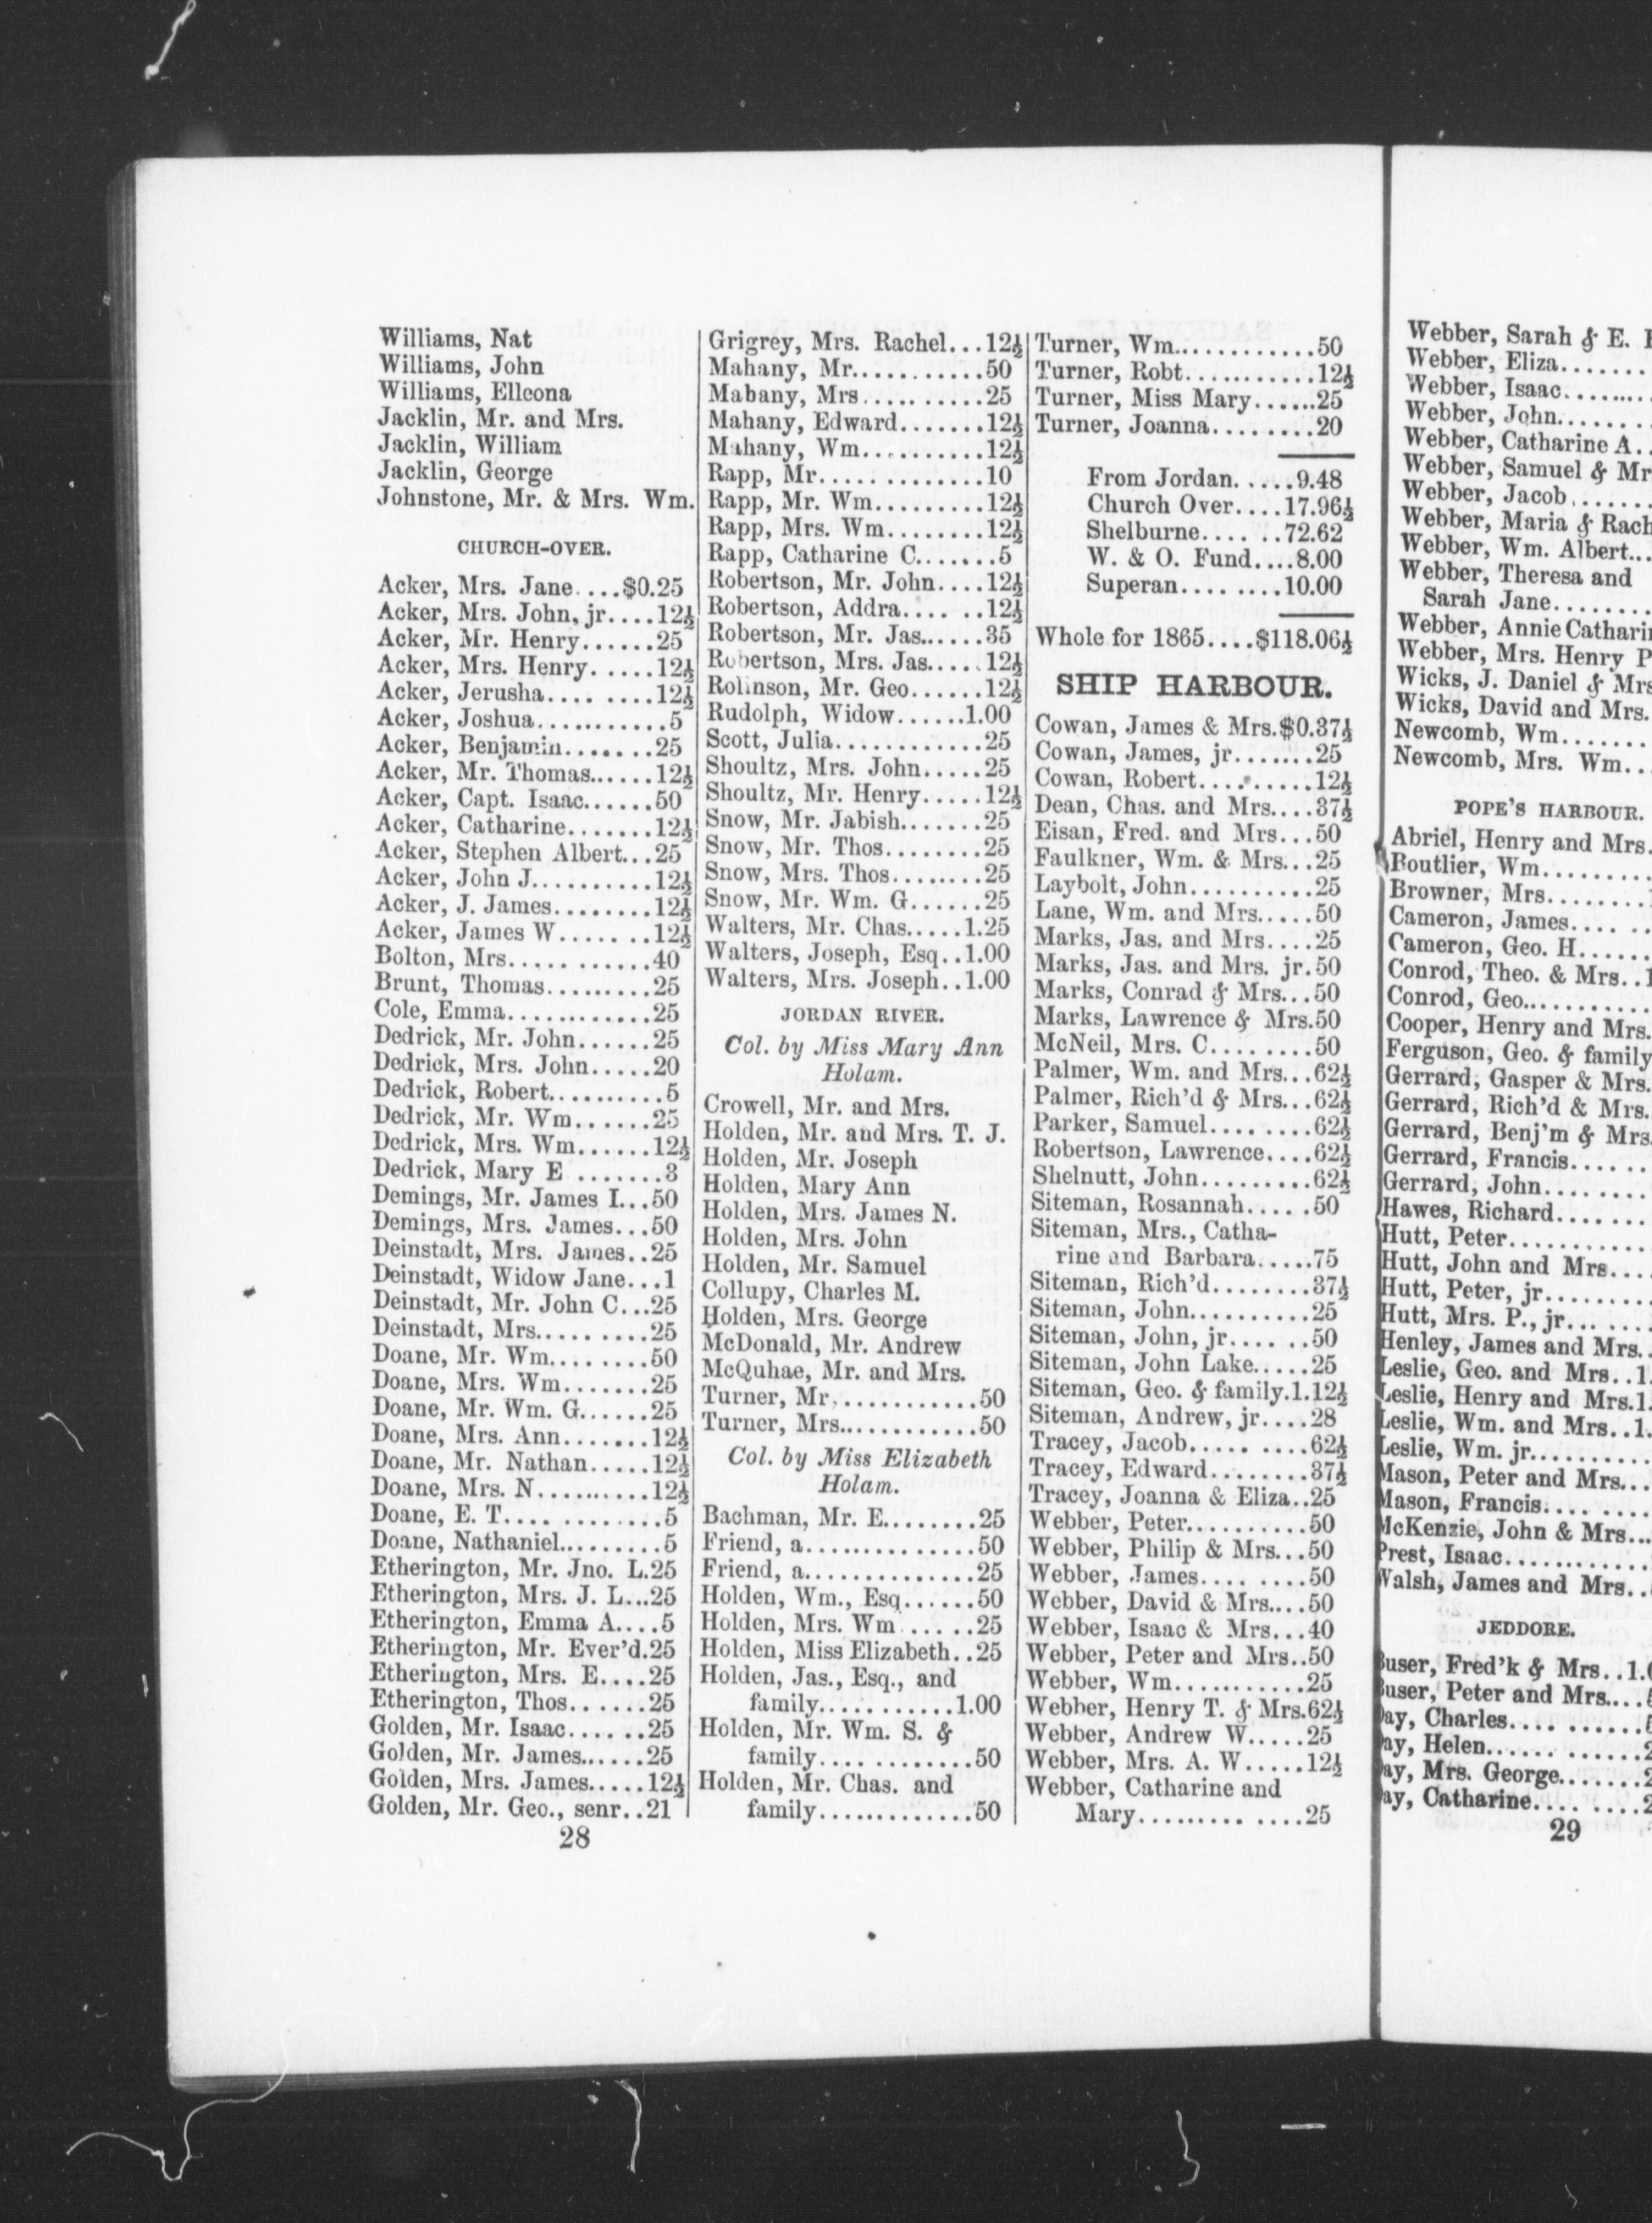 Williams, Nat
Williams, John
Williams, Elleona
Jacklin, Mr. and Mrs.
Jacklin, William
Jacklin, George
Johnstone, Mr. & Mrs. Wm.
CHURCH-OVER.
Acker, Mrs. Jane....$0.25
Acker, Mrs. John, jr....12½
Acker, Mr. Henry......25
Acker, Mrs. Henry.....12½
Acker, Jerusha........12½
Acker, Joshua...........5
Acker, Benjamin.......25
Acker, Mr. Thomas......12½
Acker, Capt. Isaac......50
Acker, Catharine.......12½
Acker, Stephen Albert...25
Acker, John J..........12½
Acker, J. James........12½
Acker, James W.......12½
Bolton, Mrs...........40
Brunt, Thomas.........25
Cole, Emma............25
Dedrick, Mr. John......25
Dedrick, Mrs. John.....20
Dedrick, Robert..........5
Dedrick, Mr. Wm......25
Dedrick, Mrs. Wm......12½
Dedrick, Mary E .......3
Demings, Mr. James I...50
Demings, Mrs. James...50
Deinstadt, Mrs. James..25
Deinstadt, Widow Jane...1
Deinstadt, Mr. John C...25
Deinstadt, Mrs..........25
Doane, Mr. Wm........50
Doane, Mrs. Wm.......25
Doane, Mr. Wm. G......25
Doane, Mrs. Ann.......12½
Doane, Mr. Nathan.....12½
Doane, Mrs. N.........12½
Doane, E. T............5
Doane, Nathaniel.........5
Etherington, Mr. Jno. L.25
Etherington, Mrs. J. L...25
Etherington, Emma A....5
Etherington, Mr. Ever'd.25
Etherington, Mrs. E....25
Etherington, Thos......25
Golden, Mr. Isaac......25
Golden, Mr. James......25
Golden, Mrs. James.....12½
Golden, Mr. Geo., senr..21
28
Grigrey, Mrs. Rachel...12½
Mahany, Mr...........50
Mabany, Mrs..........25
Mahany, Edward.......12½
Mahany, Wm..........12½
Rapp, Mr..............10
Rapp, Mr. Wm.........12½
Rapp, Mrs. Wm........12½
Rapp, Catharine C.......5
Robertson, Mr. John....12½
Robertson, Addra......12½
Robertson, Mr. Jas......35
Robertson, Mrs. Jas.....12½
Robinson, Mr. Geo......12½
Rudolph, Widow......1.00
Scott, Julia.............25
Shoultz, Mrs. John.....25
Shoultz, Mr. Henry.....12½
Snow, Mr. Jabish.......25
Snow, Mr. Thos........25
Snow, Mrs. Thos........25
Snow, Mr. Wm. G......25
Walters, Mr. Chas.....1.25
Walters, Joseph, Esq..1.00
Walters, Mrs. Joseph..1.00
JORDAN RIVER.
Col. by Miss Mary Ann
Holam.
Crowell, Mr. and Mrs.
Holden, Mr. and Mrs. T. J.
Holden, Mr. Joseph
Holden, Mary Ann
Holden, Mrs. James N.
Holden, Mrs. John
Holden, Mr. Samuel
Collupy, Charles M.
Holden, Mrs. George
McDonald, Mr. Andrew
McQuhae, Mr. and Mrs.
Turner, Mr............50
Turner, Mrs...........50
Col. by Miss Elizabeth
Holam.
Bachman, Mr. E........25
Friend, a...............50
Friend, a...............25
Holden, Wm., Esq......50
Holden, Mrs. Wm......25
Holden, Miss Elizabeth..25
Holden, Jas., Esq., and
family............1.00
Holden, Mr. Wm. S. &
family.............50
Holden, Mr. Chas. and
family.............50
Turner, Wm............50
Turner, Robt...........12½
Turner, Miss Mary......25
Turner, Joanna.........20
From Jordan.....9.48
Church Over....17.96½
Shelburne......72.62
W. & O. Fund....8.00
Superan........10.00
Whole for 1865....$118.06½
SHIP HARBOUR.
Cowan, James & Mrs.$0.37½
Cowan, James, jr.......25
Cowan, Robert..........12½
Dean, Chas. and Mrs....37½
Eisan, Fred. and Mrs...50
Faulkner, Wm. & Mrs...25
Laybolt, John...........25
Lane, Wm. and Mrs.....50
Marks, Jas. and Mrs....25
Marks, Jas. and Mrs. jr.50
Marks, Conrad & Mrs...50
Marks, Lawrence & Mrs.50
McNeil, Mrs. C........50
Palmer, Wm. and Mrs...62½
Palmer, Rich'd & Mrs...62½
Parker, Samuel........62½
Robertson, Lawrence....62½
Shelnutt, John.........62½
Siteman, Rosannah.....50
Siteman, Mrs., Catha-
rine and Barbara.....75
Siteman, Rich'd........37½
Siteman, John..........25
Siteman, John, jr......50
Siteman, John Lake.....25
Siteman, Geo. & family.1.12½
Siteman, Andrew, jr....28
Tracey, Jacob.........62½
Tracey, Edward........37½
Tracey, Joanna & Eliza..25
Webber, Peter..........50
Webber, Philip & Mrs...50
Webber, James........50
Webber, David & Mrs....50
Webber, Isaac & Mrs...40
Webber, Peter and Mrs..50
Webber, Wm...........25
Webber, Henry T. & Mrs.62½
Webber, Andrew W.....25
Webber, Mrs. A. W.....12½
Webber, Catharine and
Mary..............25
Webber, Sarah & E.
Webber, Eliza........
Webber, Isaac........
Webber, John........
Webber, Catharine A..
Webber, Samuel &
Webber, Jacob.......
Webber, Maria &
Webber, Wm. Albert...
Webber, Theresa and
Sarah Jane........
Webber, Annie
Webber, Mrs. Henry
Wicks, J. Daniel &
Wicks, David and Mrs.
Newcomb, Wm.......
Newcomb, Mrs. Wm..
POPE'S HARBOUR.
Abriel, Henry and Mrs.
Boutlier, Wm.........
Browner, Mrs........
Cameron, James......
Cameron, Geo. H......
Conrod, Theo. & Mrs..
Conrod, Geo...........
Cooper, Henry and Mrs.
Ferguson, Geo. & family
Gerrard, Gasper & Mrs.
Gerrard, Rich'd & Mrs.
Gerrard, Benj'm & Mrs
Gerrard, Francis......
Gerrard, John........
Hawes, Richard.......
Hutt, Peter...........
Hutt, John and Mrs....
Hutt, Peter, jr.........
Hutt, Mrs. P., jr.......
Henley, James and Mrs..
Leslie, Geo. and Mrs..1.
Leslie, Henry and Mrs.1.
Leslie, Wm. and Mrs..1.
Leslie, Wm. jr.........
Mason, Peter and Mrs...
Mason, Francis........
McKenzie, John & Mrs...
Prest, Isaac............
Walsh, James and Mrs..
JEDDORE.
Fred'k & Mrs..1.
Peter and Mrs....
Charles..........
Helen...........
Mrs. George.......
Catharine........
29